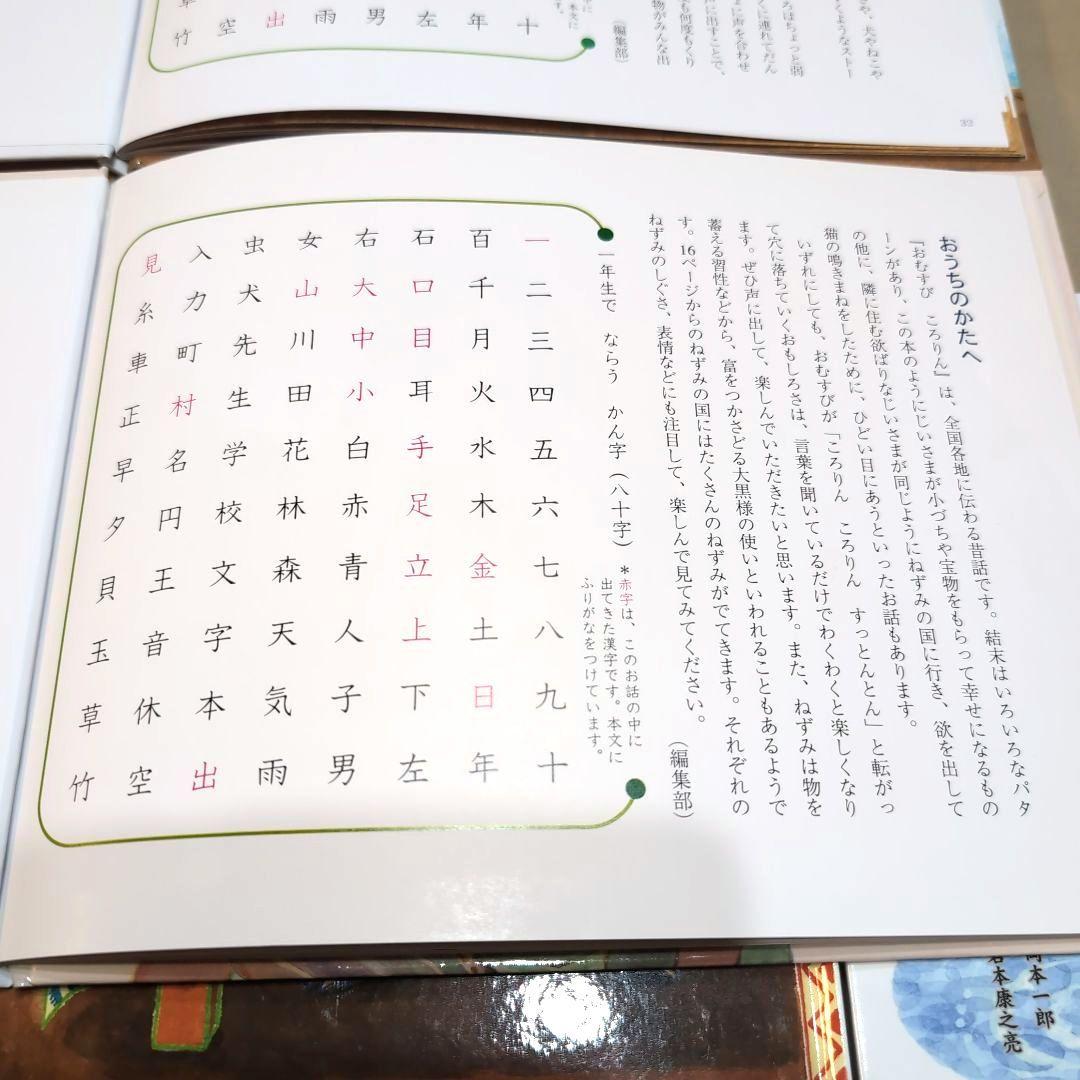 おうちのかたへ
『おむすび　ころりん』は、全国各地に伝わる昔話です。結末はいろいろなパタ
ーンがあり、この本のようにじいさまが小づちや宝物をもらって幸せになるもの
の他に、隣に住む欲ばりなじいさまが同じようにねずみの国に行き、欲を出して
猫の鳴きまねをしたために、ひどい目にあうといったお話もあります。
いずれにしても、おむすびが「ころりん　ころりん　すっとんとん」と転がっ
て穴に落ちていくおもしろさは、言葉を聞いているだけでわくわくと楽しくなり
ます。ぜひ声に出して、楽しんでいただきたいと思います。また、ねずみは物を
蓄える習性などから、富をつかさどる大黒様の使いといわれることもあるようで
す。16ページからのねずみの国にはたくさんのねずみがでてきます。それぞれの
ねずみのしぐさ、表情などにも注目して、楽しんで見てみてください。
（編集部）
一年生で　ならう　かん字（八十字）
＊赤字は、このお話の中に
出てきた漢字です。本文に
ふりがなをつけています。
一二三四五六七八九十
百千月火水木金土日年
石口目耳手足立上下左
右大中小白赤青人子男
女山川田花林森天気雨
虫犬先生学校文字本出
入力町村名円王音休空
見糸車正早夕貝玉草竹
十
年
左
男
雨
出
空
竹
（編集部）
32
本一郎
本康之亮